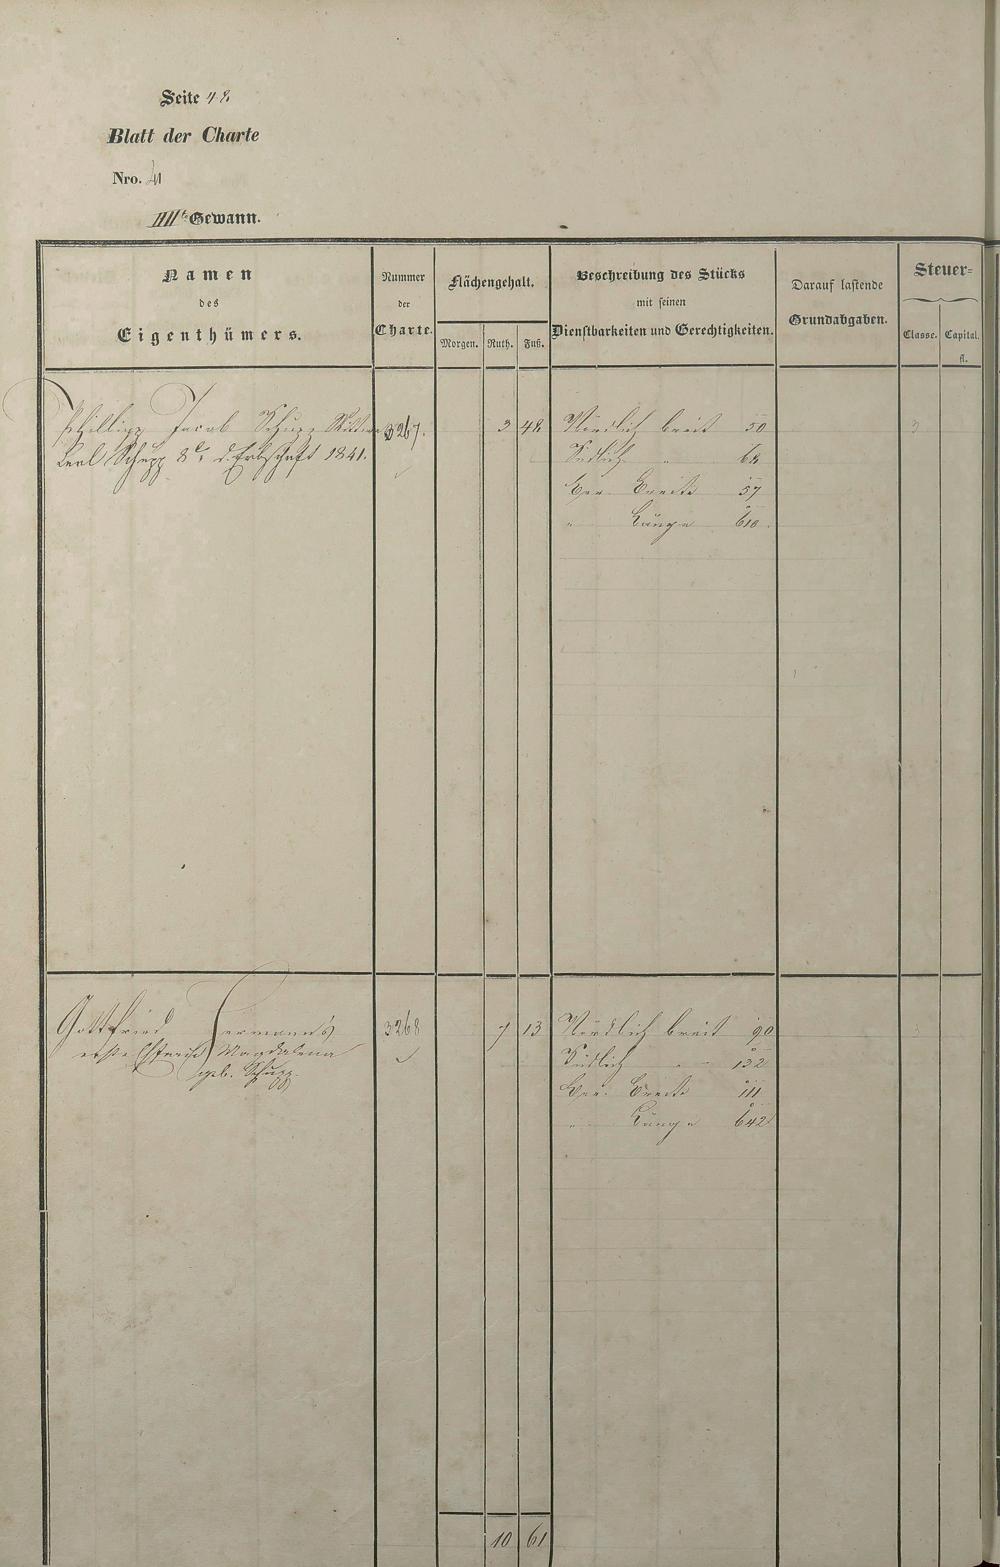 Seite 48
Blatt der Charte
Nro. 41
IIIte Gewann.
Namen
des
Eigenthümers.
Nummer
der
Charte.
Flächengehalt.
Morgen. Ruth. Fuß.
Beschreibung des Stücks
mit seinen
Dienstbarkeiten und Gerechtigkeiten.
Darauf lastende
Grundabgaben.
Steuer=
Classe. Capital.
fl.
Phillipp Jacob Schupp 3267. 3 48 Nördlich breit 50 3
Carl Schupp 2r d. Erbschaft 1841. Südlich " 64
Ger. Breite 57
" Länge 610.
Gottfried Hermann's 3268 7 13 Nördlich breit 90 3
erste Ehefrau Magdalena Südlich " 132
geb. Schupp. Ger. Breite 111
" Länge 642
10 61